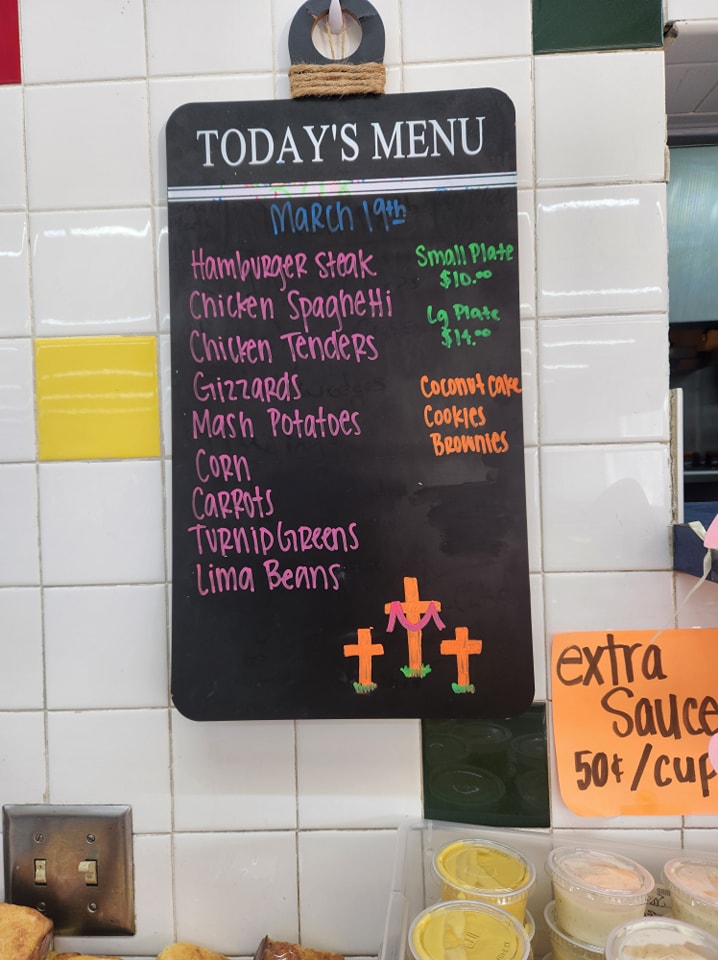 TODAY'S MENU
March 19th
Hamburger Steak
Chicken Spaghetti
Chicken Tenders
Gizzards
Mash Potatoes
Corn
Carrots
Turnip Greens
Lima Beans
Small Plate
$10.00
Lg Plate
$14.00
Coconut Cake
Cookies
Brownies
extra
Sauce
50¢/cup